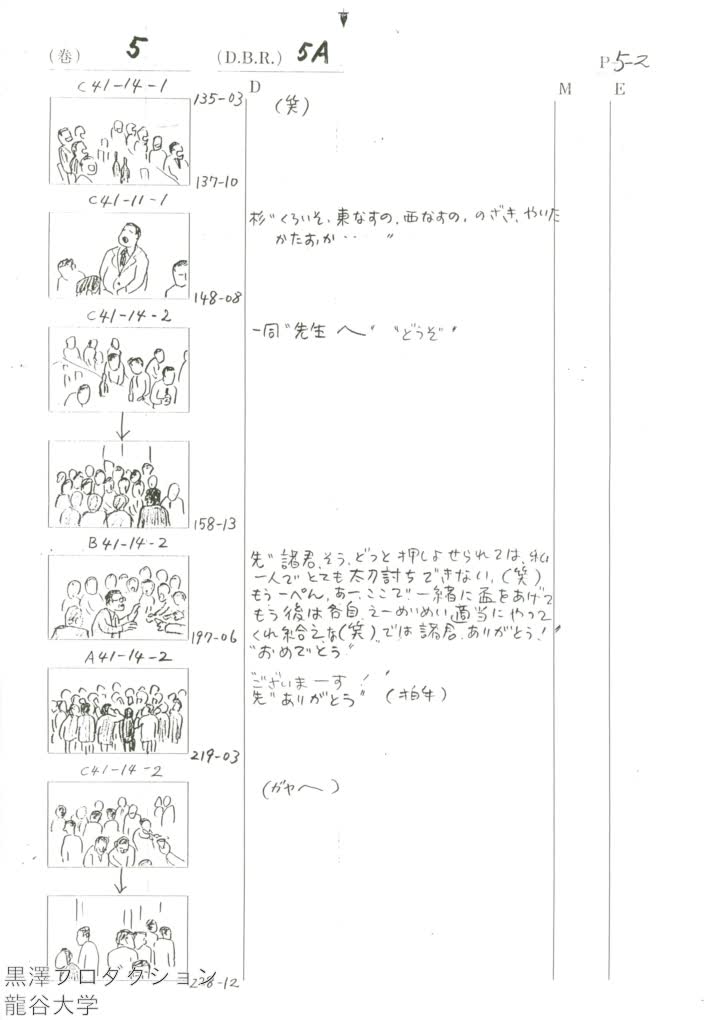 (巻) 5 (D.B.R.) 5A P 5-2
D M E
C41-14-1
135-03
(笑)
137-10
C41-11-1
杉"くろいそ、東なすの、西なすの、のざき、やいた
かたおか・・ "
148-08
C41-14-2
一同"先生へ" "どうぞ"
158-13
B41-14-2
先"諸君、そう、どっと押しよせられては、私
一人でとても太刀討ちできない、(笑)
もう一ぺん、あー、ここで一緒に盃をあげて
もう後は各自えーめいめい適当にやって
くれ給えな(笑)、では諸君、ありがとう!"
"おめでとう"
197-06
A41-14-2
ございまーす!"
先"ありがとう" (拍手)
219-03
C41-14-2
(ガヤへ)
228-12
黒澤プロダクション
龍谷大学